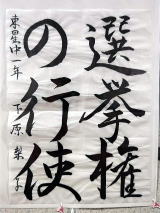 選挙権
の行使
東星中一年 下原梨子